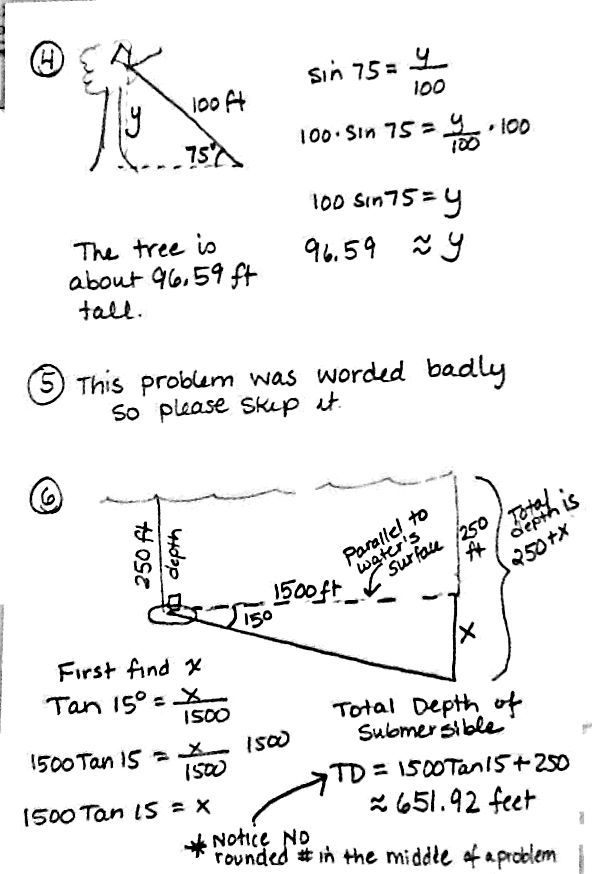 4
100 ft
y
75°
sin 75 = y/100
100 · sin 75 = y/100 · 100
100 sin 75 = y
96.59 ≈ y
The tree is
about 96.59 ft
tall.
5 This problem was worded badly
so please skip it.
6
250 ft
depth
1500 ft
15°
Parallel to
water's
surface
250
ft
x
Total
depth is
250+x
First find x
Tan 15° = x/1500
1500 Tan 15 = x/1500 1500
1500 Tan 15 = x
Total Depth of
Submersible
TD = 1500Tan15 + 250
≈ 651.92 feet
* Notice NO
rounded # in the middle of a problem